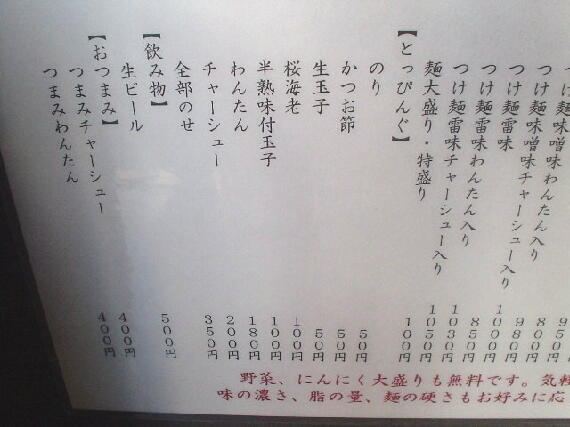 つけ麺味噌味わんたん入り
つけ麺味噌味チャーシュー入り
つけ麺雷味
つけ麺雷味わんたん入り
つけ麺雷味チャーシュー入り
麺大盛り・特盛り 100円
【とっぴんぐ】
のり 50円
かつお節 50円
生玉子 50円
桜海老 100円
半熟味付玉子 100円
わんたん 180円
チャーシュー 200円
全部のせ 350円
【飲み物】
生ビール 500円
【おつまみ】
つまみチャーシュー 400円
つまみわんたん 400円
野菜、にんにく大盛りも無料です。気軽
味の濃さ、脂の量、麺の硬さもお好みに応